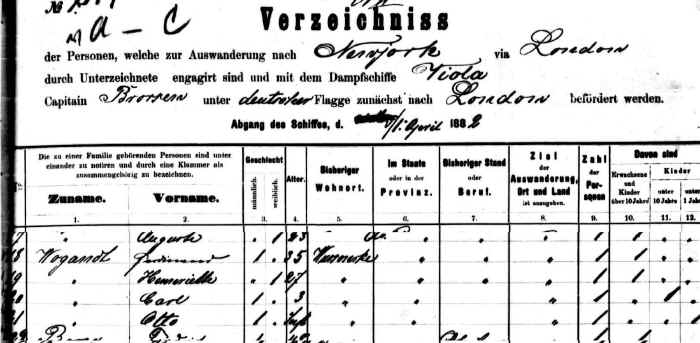 a - C
Verzeichniss
der Personen, welche zur Auswanderung nach Newyork via London
durch Unterzeichnete engagirt sind und mit dem Dampfschiffe Viola
Capitain unter deutscher Flagge zunächst nach London befördert werden.
Abgang des Schiffes, d. 1. April 1882
Die zu einer Familie gehörenden Personen sind unter einander zu notiren und durch eine Klammer als zusammengehörig zu bezeichnen.
Zuname. Vorname.
Geschlecht männlich. weiblich.
Alter.
Bisheriger Wohnort.
Im Staate oder in der Provinz.
Bisheriger Stand oder Beruf.
Ziel der Auswanderung, Ort und Land ist anzugeben.
Zahl der Personen
Davon sind
Erwachsene und Kinder über 10 Jahre
Kinder unter 10 Jahre unter 1 Jahr
1. 2. 3. 4. 5. 6. 7. 8. 9. 10. 11. 12.
" Auguste " 1 23 " " " 1 1 " "
Wogandt Ferdinand 1 " 35 " " " 1 1 " "
" Henriette " 1 27 " " " " 1 1 " "
" Carl 1 " 3 " " " " 1 " 1 "
" Otto 1 " " " " " 1